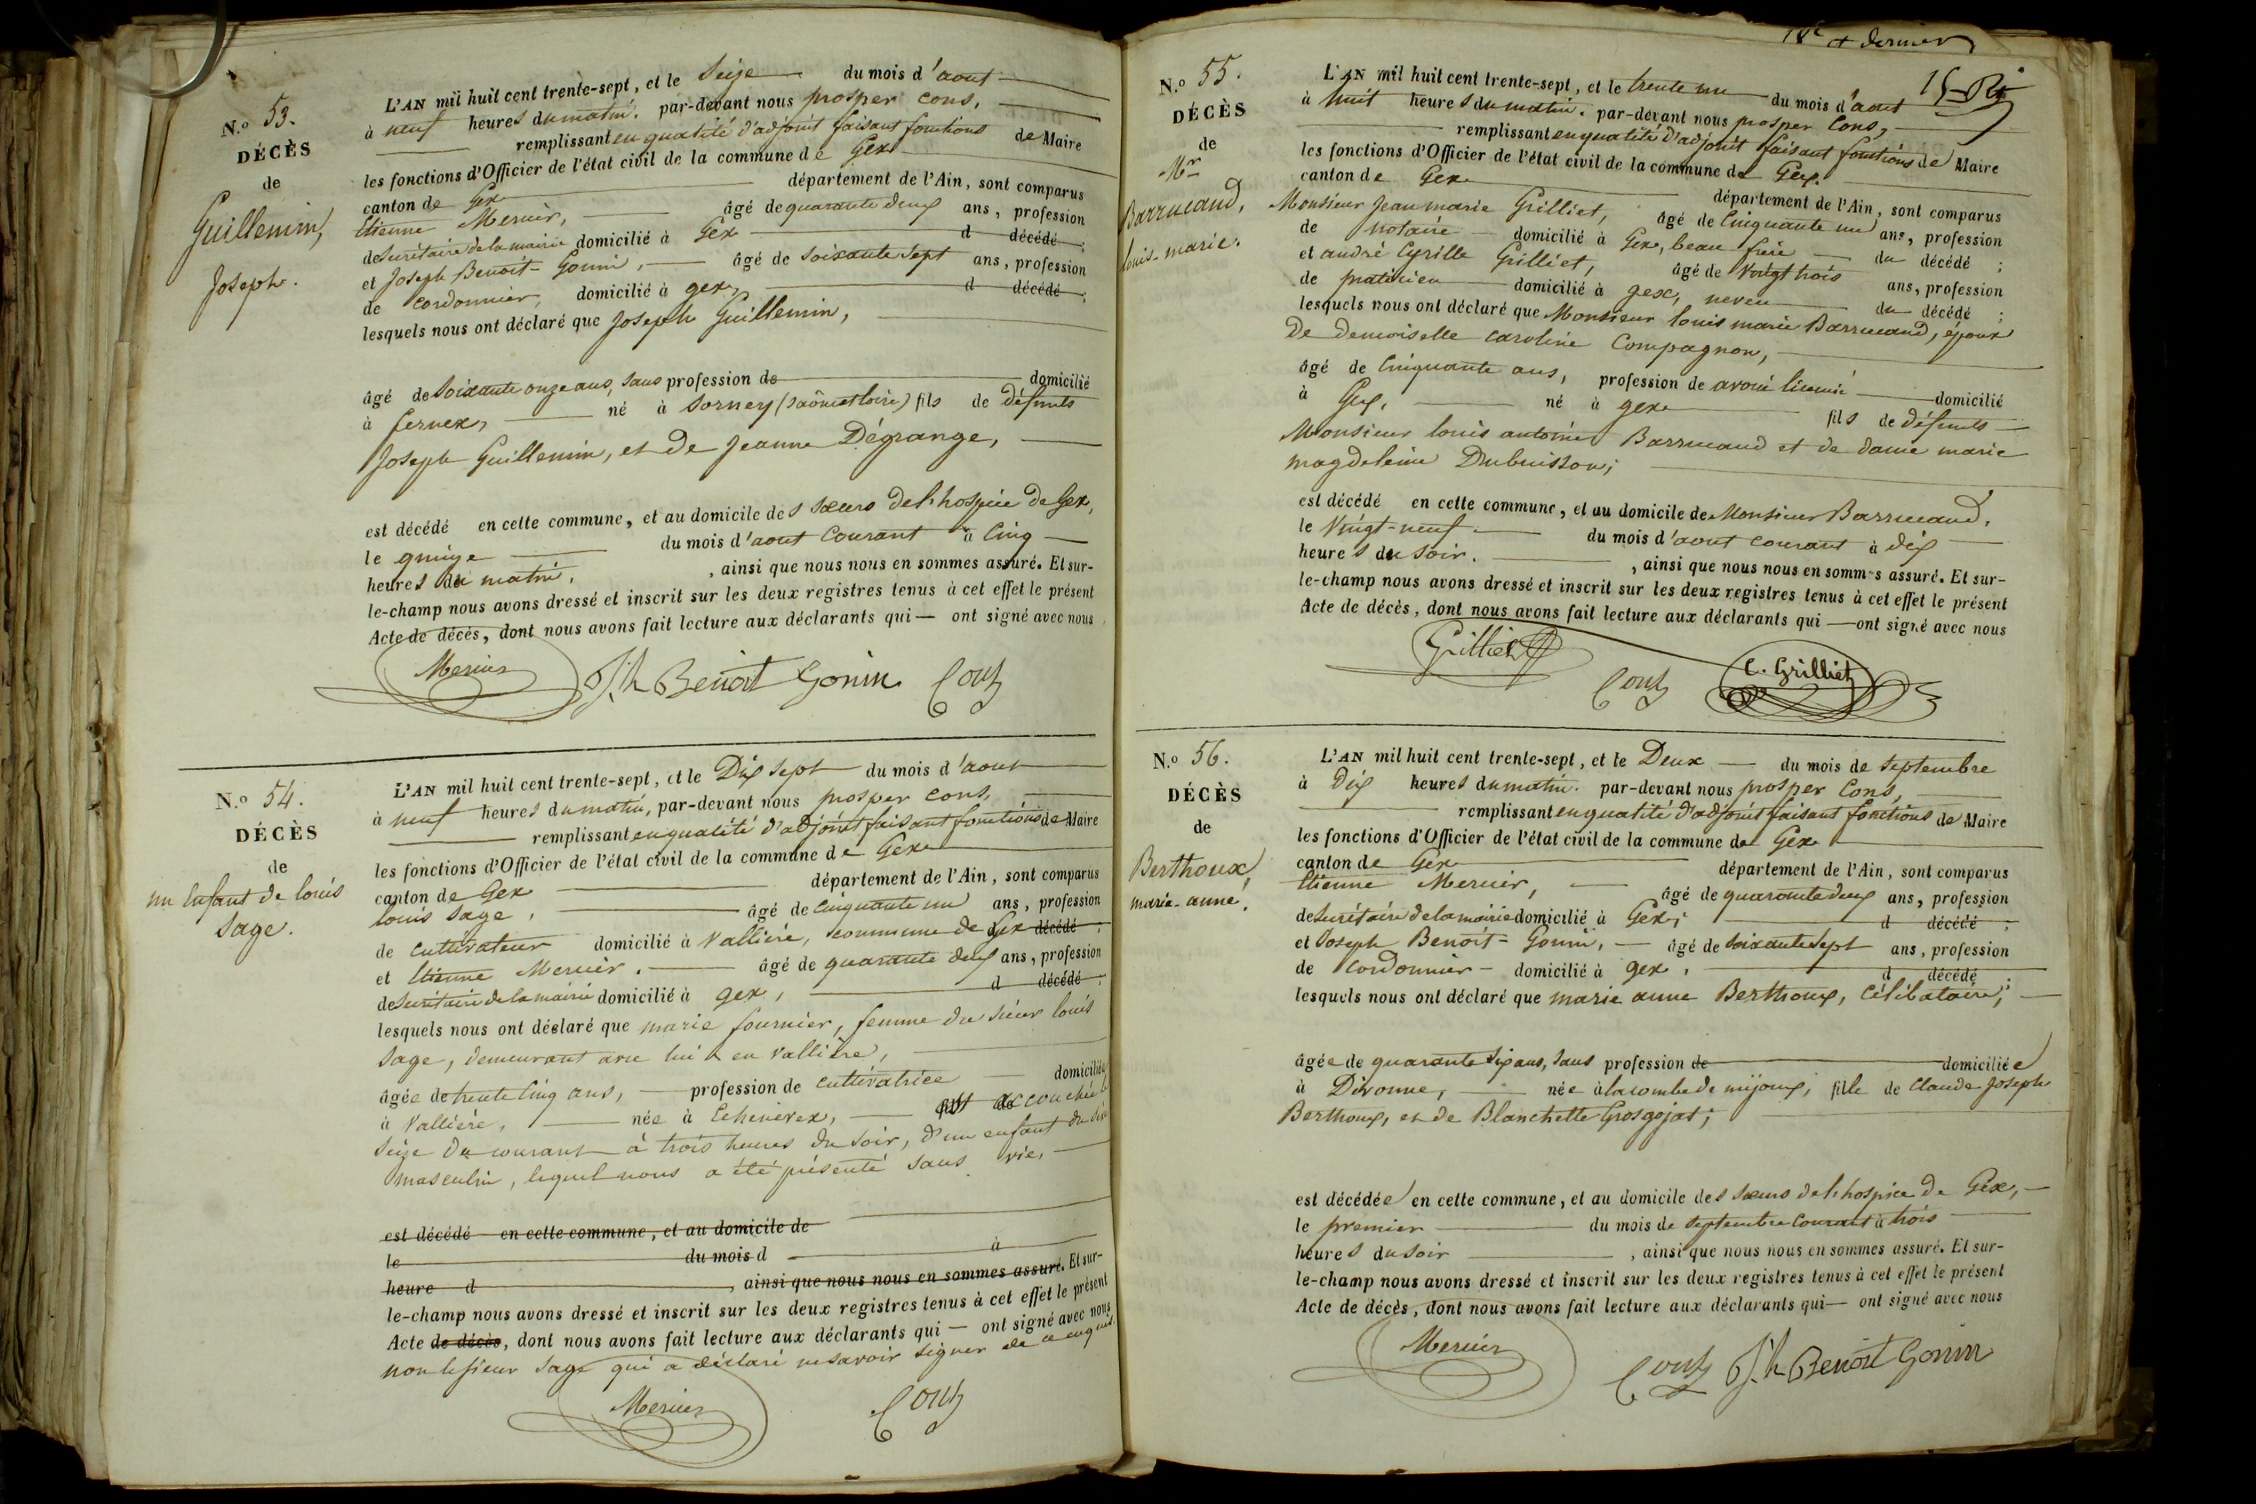 N.o 53.
DÉCÈS
de
Guillemin,
Joseph.
L'AN mil huit cent trente-sept, et le Seize du mois d'aout
à neuf heures du matin. par-devant nous prosper Cons,
remplissant en qualité d'adjoint faisant fonctions de Maire
les fonctions d'Officier de l'état civil de la commune de Gex
canton de Gex département de l'Ain, sont comparus
Etienne Mercier, âgé de quarante deux ans, profession
de Secrétaire de la mairie domicilié à Gex d décédé ;
et Joseph Benoit-Gonin, âgé de soixante sept ans, profession
de cordonnier, domicilié à gex, d décédé ;
lesquels nous ont déclaré que Joseph Guillemin,
âgé de soixante onze ans, sans profession de domicilié
à fernex, né à Sorney (saône et loire) fils de défunts
Joseph Guillemin, et de Jeanne Dégrange,
est décédé en cette commune, et au domicile des sœurs de l'hospice de Gex,
le quinze du mois d'aout courant à cinq
heures du matin, , ainsi que nous nous en sommes assuré. Et sur-
le-champ nous avons dressé et inscrit sur les deux registres tenus à cet effet le présent
Acte de décès, dont nous avons fait lecture aux déclarants qui — ont signé avec nous
Mercier Jh Benoit Gonin Cons
N.o 54.
DÉCÈS
de
un Enfant de louis
Sage.
L'AN mil huit cent trente-sept, et le Dix sept du mois d'aout
à neuf heures du matin, par-devant nous prosper cons,
remplissant en qualité d'adjoint faisant fonctions de Maire
les fonctions d'Officier de l'état civil de la commune de Gex
canton de Gex département de l'Ain, sont comparus
louis Sage, âgé de cinquante un ans, profession
de cultivateur domicilié à Vallière, commune de Gex décédé ;
et Etienne Mercier. âgé de quarante deux ans, profession
de Secrétaire de la mairie domicilié à gex, d décédé ;
lesquels nous ont déclaré que marie fournier, femme du sieur louis
Sage, demeurant avec lui en Vallière,
âgée de trente cinq ans, profession de cultivatrice domiciliée
à Vallière, née à Echenevex, est accouchée le
seize du courant à trois heures du soir, d'un enfant du sexe
masculin, lequel nous a été présenté sans vie.
est décédé en cette commune, et au domicile de
le du mois d à
heure d , ainsi que nous nous en sommes assuré. Et sur-
le-champ nous avons dressé et inscrit sur les deux registres tenus à cet effet le présent
Acte de décès, dont nous avons fait lecture aux déclarants qui — ont signé avec nous
non le sieur Sage qui a déclaré ne savoir signer de ce enquis.
Mercier Cons
et dernier
N.o 55.
DÉCÈS
de
Mr
Barrucand,
louis-marie.
L'AN mil huit cent trente-sept, et le trente un du mois d'aout
à huit heures du matin. par-devant nous prosper Cons,
remplissant en qualité d'adjoint faisant fonctions de Maire
les fonctions d'Officier de l'état civil de la commune de Gex.
canton de Gex département de l'Ain, sont comparus
Monsieur Jean marie Grilliet, âgé de Cinquante un ans, profession
de notaire domicilié à Gex, beau frère du décédé ;
et andré Cyrille Grilliet, âgé de Vingt trois ans, profession
de praticien domicilié à gex, neveu du décédé ;
lesquels nous ont déclaré que Monsieur louis marie Barrucand, époux
De demoiselle caroline Compagnon,
âgé de Cinquante ans, profession de avoué licencié domicilié
à Gex, né à gex fils de défunts
Monsieur louis antoine Barrucand et de dame marie
magdeleine Dubuisson;
est décédé en cette commune, et au domicile de Monsieur Barrucand,
le Vingt-neuf du mois d'aout courant à dix
heures du soir. , ainsi que nous nous en sommes assuré. Et sur-
le-champ nous avons dressé et inscrit sur les deux registres tenus à cet effet le présent
Acte de décès, dont nous avons fait lecture aux déclarants qui — ont signé avec nous
Grilliet Cons C. Grilliet
N.o 56.
DÉCÈS
de
Berthoux,
marie-anne.
L'AN mil huit cent trente-sept, et le Deux du mois de septembre
à Dix heures du matin. par-devant nous prosper Cons,
remplissant en qualité d'adjoint faisant fonctions de Maire
les fonctions d'Officier de l'état civil de la commune de Gex
canton de Gex département de l'Ain, sont comparus
Etienne Mercier, âgé de quarante deux ans, profession
de Secrétaire de la mairie domicilié à Gex; d décédé ;
et Joseph Benoit-Gonin, âgé de soixante sept ans, profession
de cordonnier domicilié à gex, d décédé ;
lesquels nous ont déclaré que marie anne Berthoux, célibataire;
âgée de quarante six ans, sans profession de domiciliée
à Divonne, née à la combe de mijoux, fille de Claude Joseph
Berthoux, et de Blanchette Grosgojat;
est décédée en cette commune, et au domicile des sœurs de l'hospice de Gex,
le premier du mois de septembre courant à trois
heures du soir , ainsi que nous nous en sommes assuré. Et sur-
le-champ nous avons dressé et inscrit sur les deux registres tenus à cet effet le présent
Acte de décès, dont nous avons fait lecture aux déclarants qui — ont signé avec nous
Mercier Cons Jh Benoit Gonin